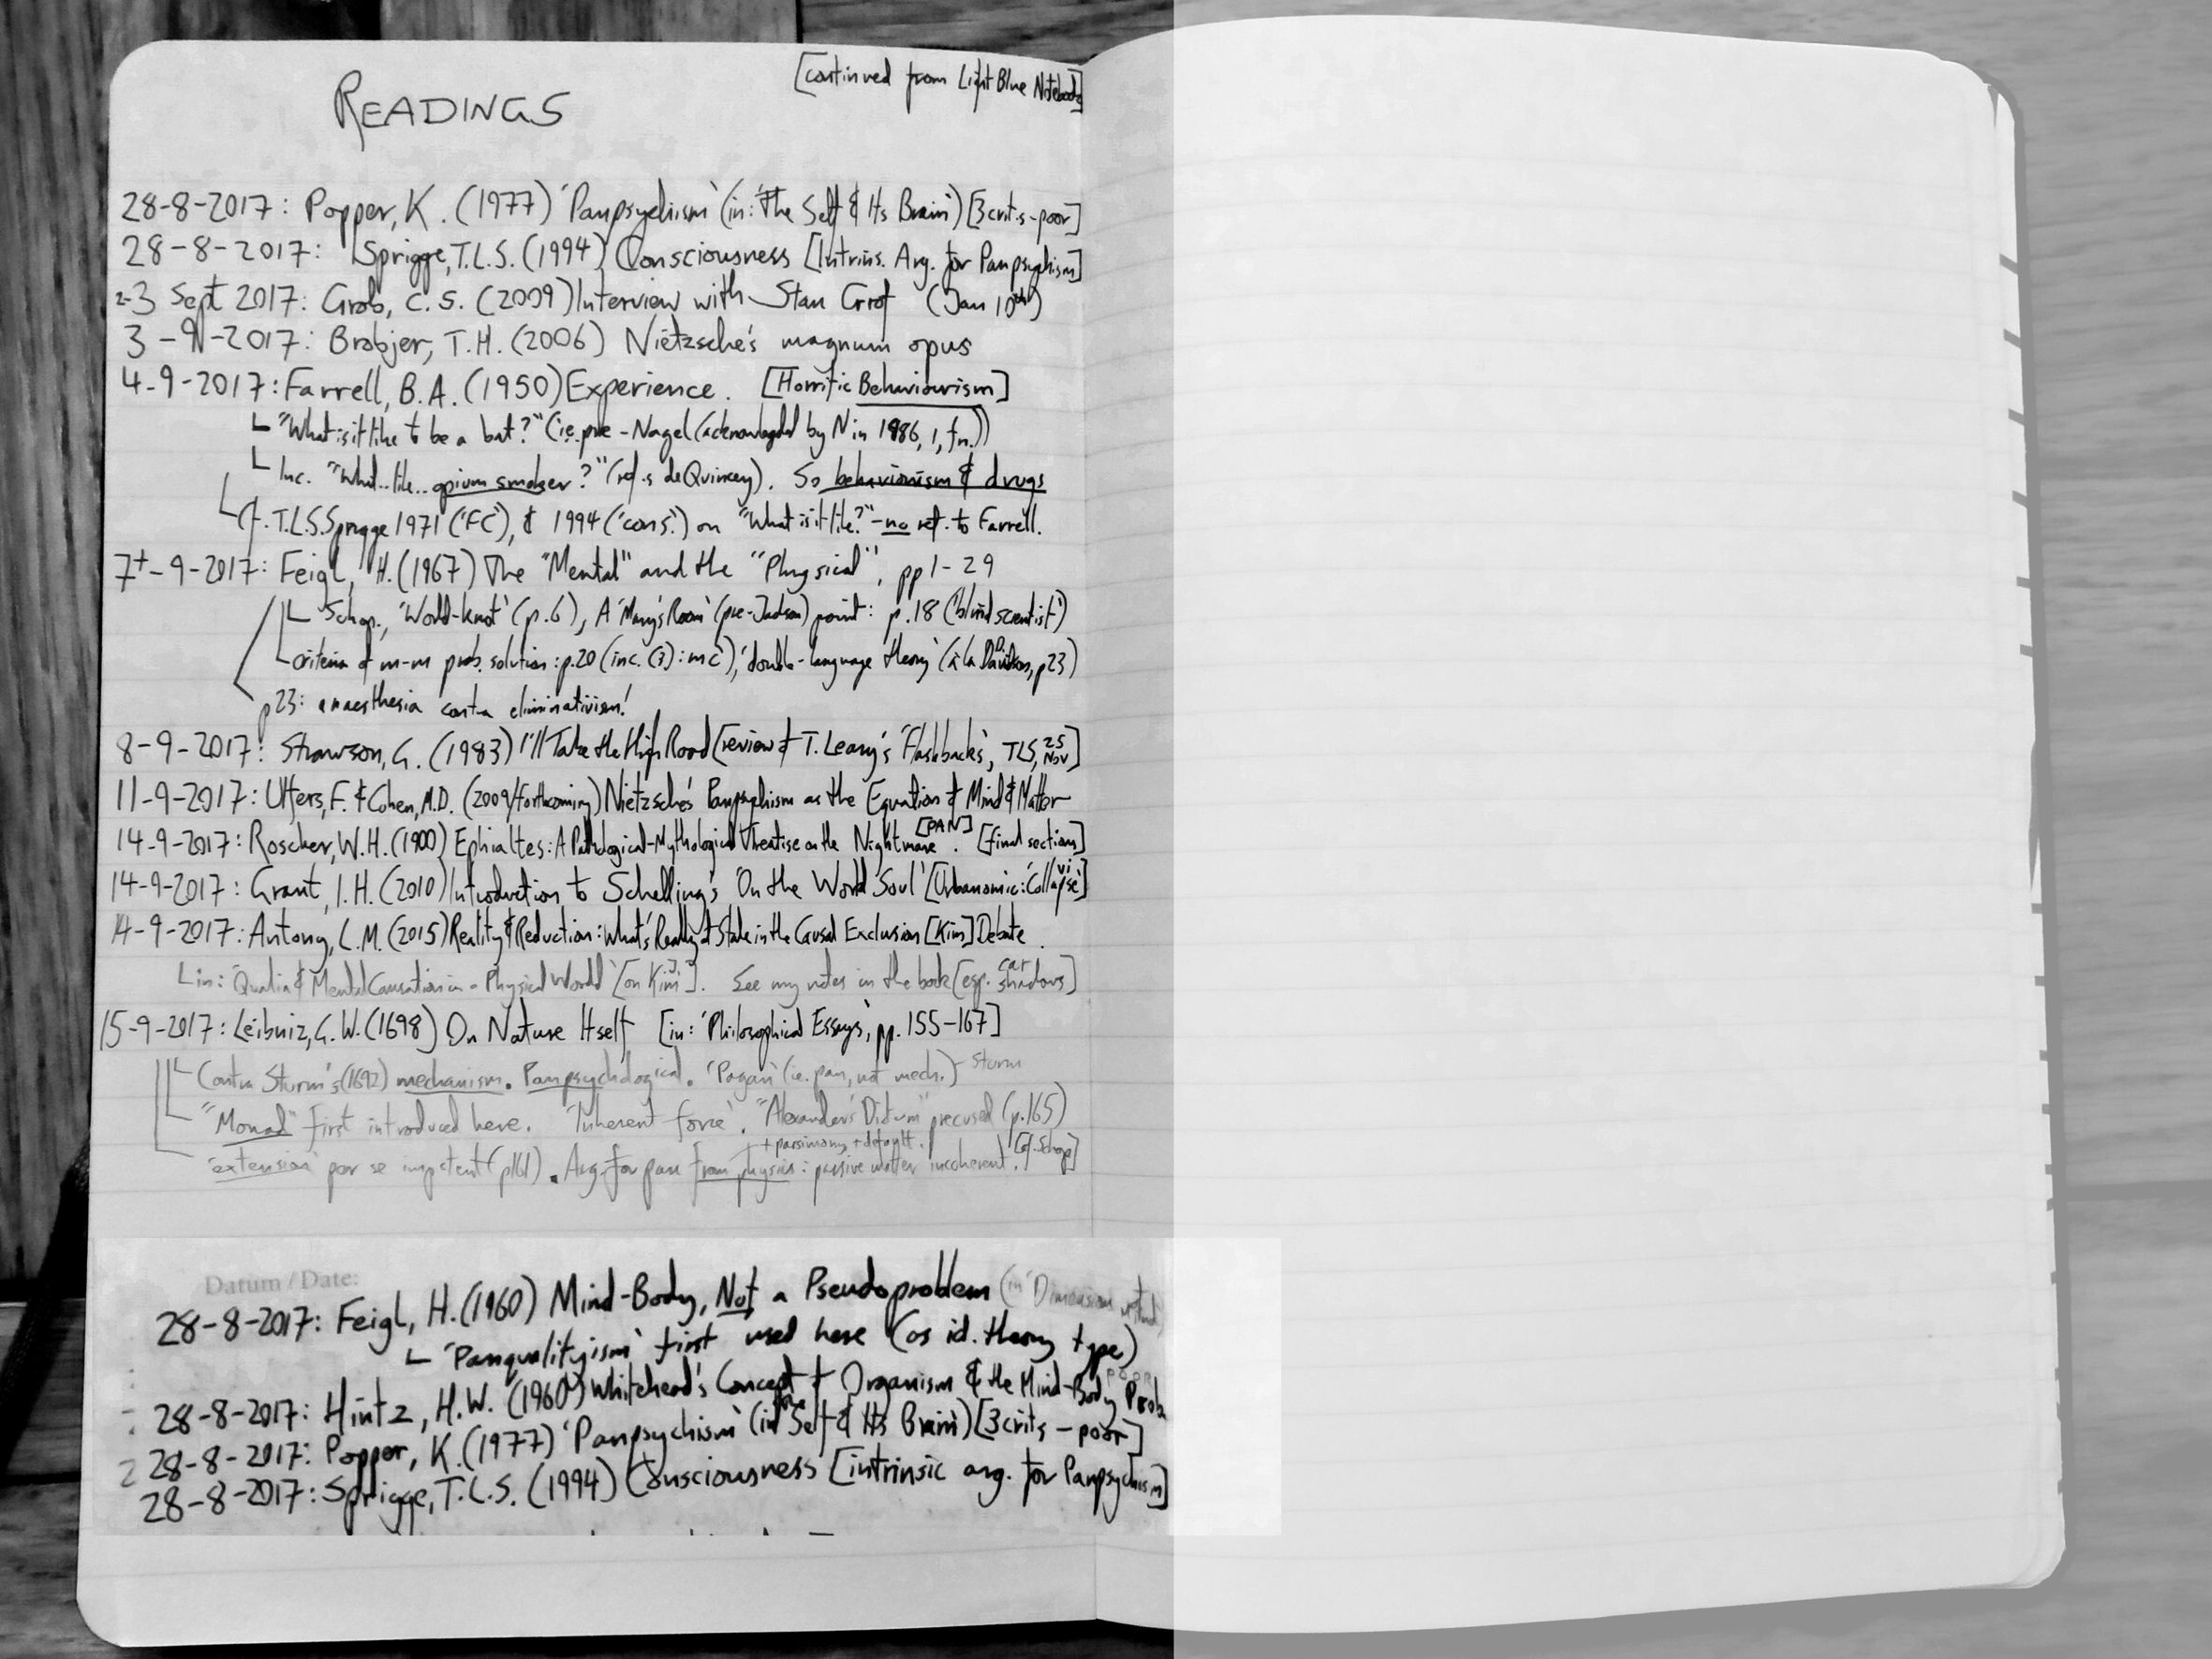 [continued from Light Blue Notebook]
READINGS
28-8-2017: Popper, K. (1977) 'Panpsychism' (in: 'The Self & Its Brain') [3 crit.s - poor]
28-8-2017: Sprigge, T.L.S. (1994) Consciousness [Intrins. Arg. for Panpsychism]
2-3 Sept 2017: Grob, C.S. (2009) Interview with Stan Grof (Jan 10th)
3-9-2017: Brobjer, T.H. (2006) Nietzsche's magnum opus
4-9-2017: Farrell, B.A. (1950) Experience. [Horrific Behaviourism]
"What is it like to be a bat?" (i.e. pre-Nagel (acknowledged by N in 1986, 1, fn.))
Inc. "What..like..opium smoker?" (ref.s deQuincey). So behaviorism & drugs
Cf. T.L.S. Sprigge 1971 ('FC'), & 1994 ('Cons.') on "What is it like?" - no ref. to Farrell.
7+-9-2017: Feigl, H. (1967) The "Mental" and the "Physical", pp 1-29
Schop., 'World-knot' (p.6), A 'Mary's Room' (pre-Jackson) point: p.18 ('blind scientist')
criteria of m-m prob. solution: p.20 (inc. (3): mc), 'double-language theory' (à la D. Davidson, p23)
p23: anaesthesia contra eliminativism!
8-9-2017: Strawson, G. (1983) I'll Take the High Road [review of T. Leary's 'Flashbacks', TLS, 25 Nov]
11-9-2017: Ulfers, F. & Cohen, M.D. (2009/forthcoming) Nietzsche's Panpsychism as the Equation of Mind & Matter
14-9-2017: Roscher, W.H. (1900) Ephialtes: A Pathological-Mythological Treatise on the Nightmare [PAN]. [final section]
14-9-2017: Grant, I.H. (2010) Introduction to Schelling's 'On the World Soul' [Urbanomic: Collapse vi]
14-9-2017: Antony, L.M. (2015) Reality & Reduction: What's Really at Stake in the Causal Exclusion [Kim] Debate.
in: 'Qualia & Mental Causation in a Physical World' [on Kim J.]. See my notes in the book [esp. car shadows]
15-9-2017: Leibniz, G.W. (1698) On Nature Itself [in: 'Philosophical Essays', pp. 155-167]
Contra Sturm's (1692) mechanism. Panpsychological. 'Pagan' (i.e. pan, not mech.) - Sturm
"Monad" first introduced here. 'Inherent force'. "Alexander's Dictum" precused (p.165)
+ parsimony, + default. [cf. Schop]
'extension' per se impotent (p161). Arg. for pan from physics: passive matter incoherent.
Datum / Date:
28-8-2017: Feigl, H. (1960) Mind-Body, Not a Pseudoproblem (in 'Dimensions
'Panqualityism' first used here (as id. theory type)
28-8-2017: Hintz, H.W. (1960) Whitehead's Concept of Organism & the Mind-Body Prob
poor
28-8-2017: Popper, K. (1977) 'Panpsychism' (in 'The Self & Its Brain') [3 crits - poor]
28-8-2017: Sprigge, T.L.S. (1994) Consciousness [intrinsic arg. for Panpsychism]